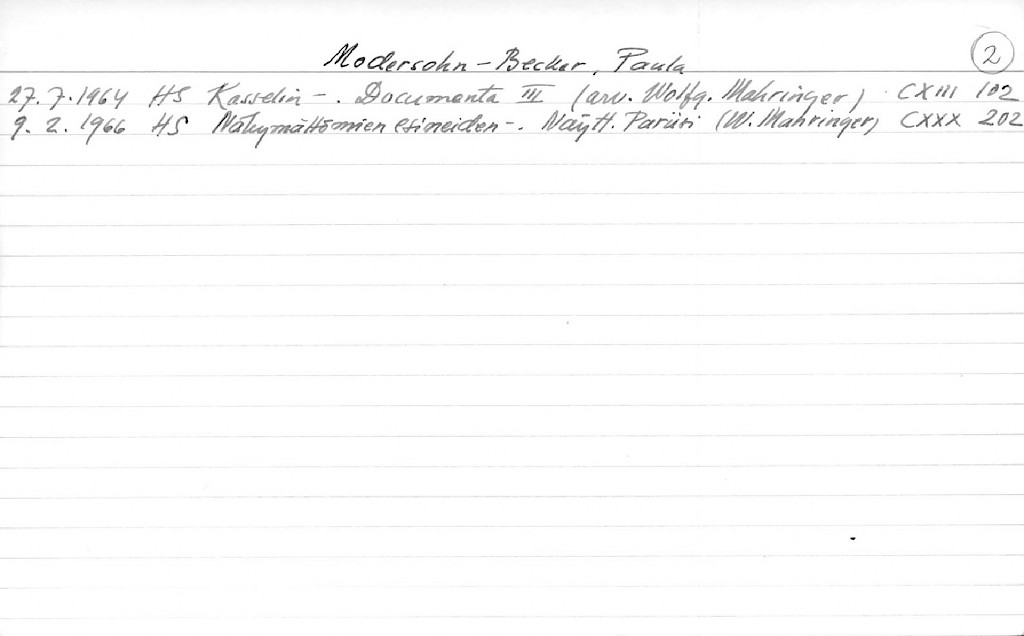 Modersohn-Becker, Paula 2
27.7.1964 HS Kasselin -. Documenta III (arv. Wolfg. Mahringer) CXIII 102
9.2.1966 HS Näkymättömien esineiden -. Näytt. Pariisi (W. Mahringer) CXXX 202